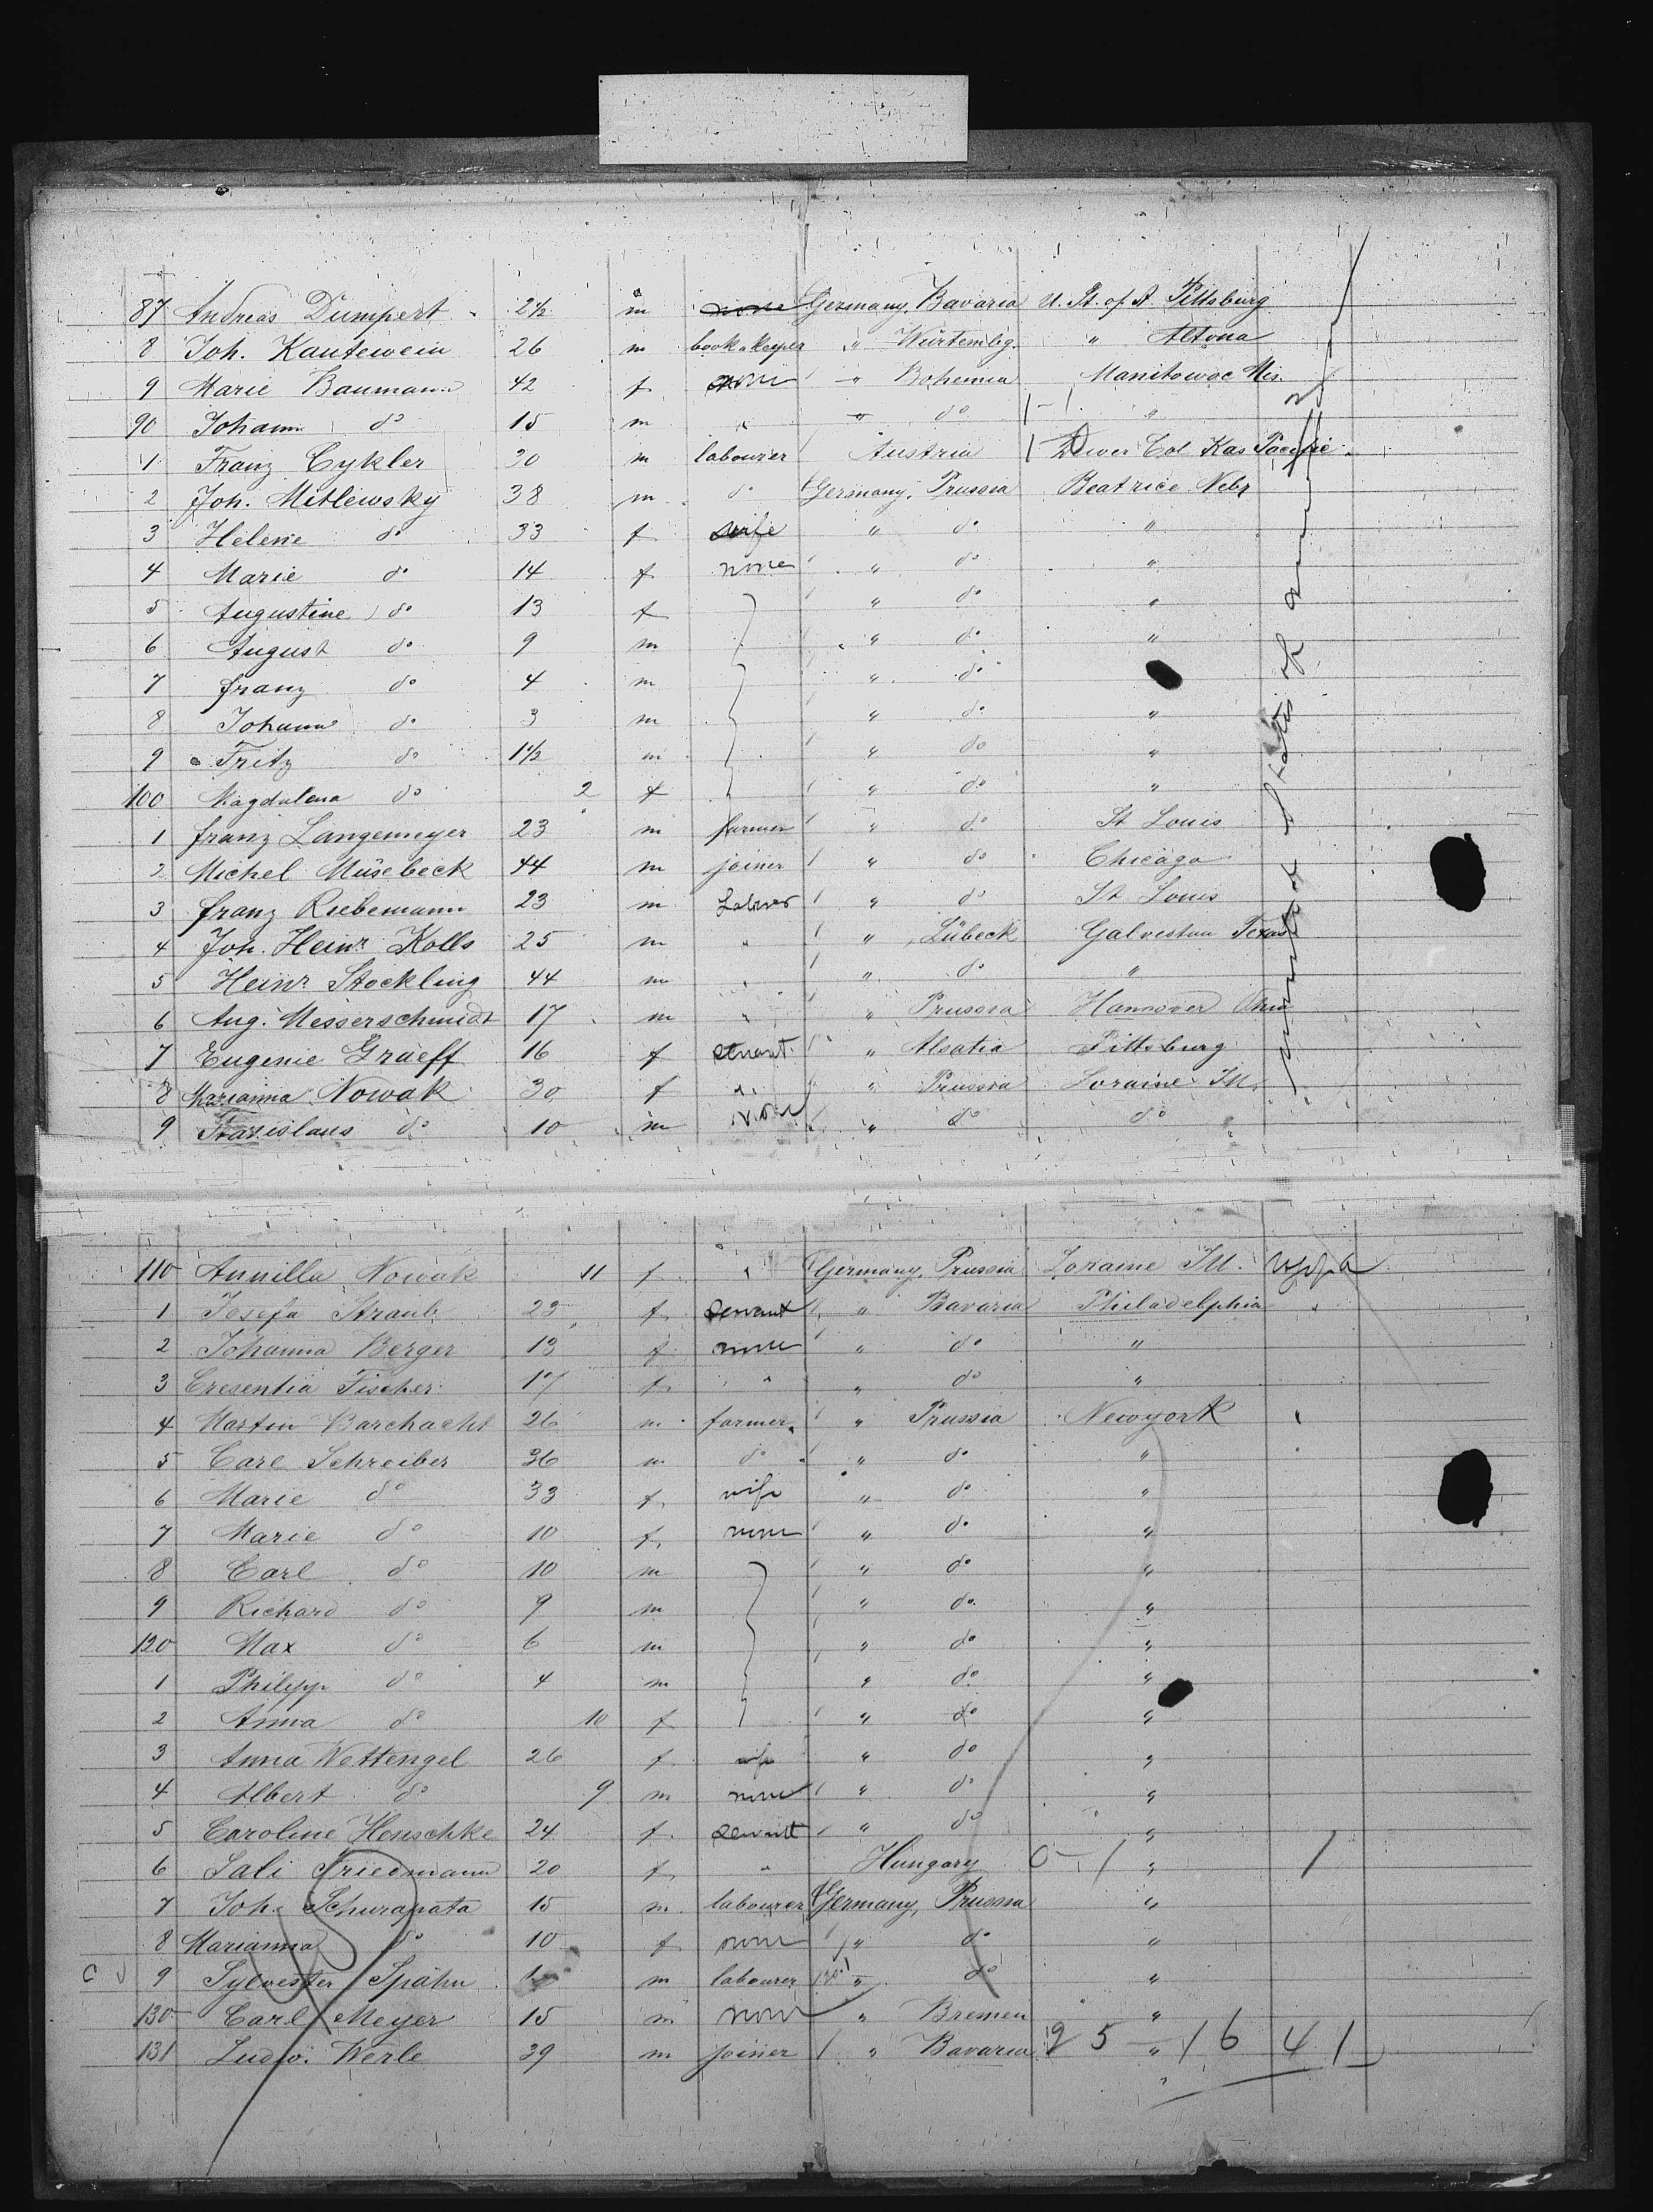 87 Andreas Dumpert 24 m none Germany, Bavaria U. St. of A. Pittsburg
8 Joh. Kautewein 26 m book-keeper " Würtembg. " Altona
9 Marie Baumann 42 f none " Bohemia Manitowoc Wis.
90 Johann do 15 m " " do "
1 Franz Cykler 30 m labourer Austria Denver Col Kas Pacific
2 Joh. Mitlewsky 38 m do Germany, Prussia Beatrice Nebr
3 Helene do 33 f wife " do "
4 Marie do 14 f none " do "
5 Augustine do 13 f " do "
6 August do 9 m " do "
7 Franz do 4 m " do
8 Johann do 3 m " do "
9 Fritz do 1½ m " do "
100 Magdalena do 2 f " do "
1 Franz Langemeyer 23 m farmer " do St Louis
2 Michel Müsebeck 44 m joiner " do Chicago
3 Franz Riebemann 23 m Labrer " do St Louis
4 Joh. Heinr. Kolls 25 m " " Lübeck Galveston Texas
5 Heinr. Stockling 44 m " " do "
6 Aug. Messerschmidt 17 m " " Prussia Hannover Ohio
7 Eugenie Graeff 16 f servant " Alsatia Pittsburg
8 Marianna Nowak 30 f " " Prussia Loraine Ill.
9 Stanislaus do 10 m None " do do
110 Annilla Nowak 11 f " Germany, Prussia Loraine Ill.
1 Josefa Straub 23 f servant " Bavaria Philadelphia "
2 Johanna Berger 13 f none " do "
3 Cresentia Fischer 17 f " " do "
4 Martin Barchacht 26 m farmer " Prussia Newyork "
5 Carl Schreiber 36 m do " do "
6 Marie do 33 f wife " do "
7 Marie do 10 f none " do "
8 Carl do 10 m " do "
9 Richard do 9 m " do "
120 Max do 6 m " do "
1 Philipp do 4 m " do "
2 Anna do 10 f " do "
3 Anna Wettengel 26 f wife " do "
4 Albert do 9 m none " do "
5 Caroline Henschke 24 f servant " do "
6 Sali Friedmann 20 f " Hungary 0-1 " 1
7 Joh. Schurapata 15 m labourer Germany, Prussia "
8 Marianna do 10 f none " do "
9 Sylvester Spähn m labourer " do "
130 Carl Meyer 15 m none " Bremen "
131 Ludw. Werle 39 m joiner " Bavaria "
25-16 41